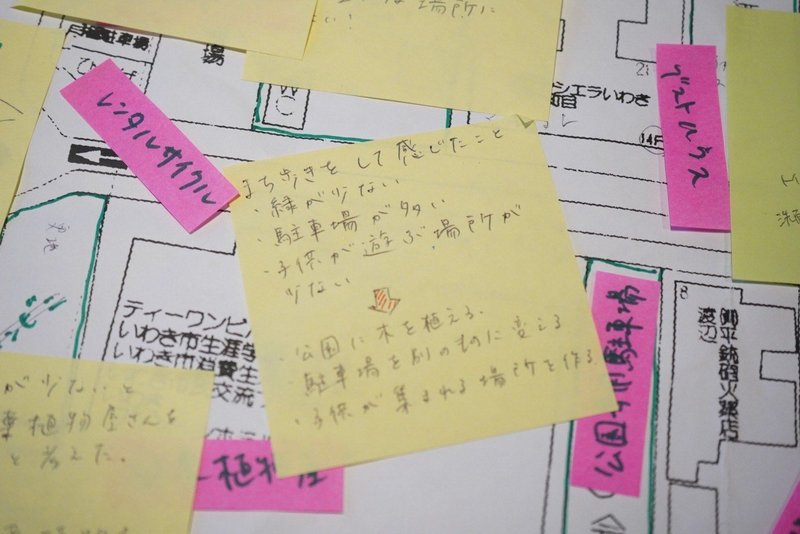 場所に
い!
駐車場
場
WC
シエラいわき
14F
レンタルサイクル
ゲストハウス
まち歩きをして感じたこと
・緑が少ない
・駐車場が多い
・子供が遊ぶ場所が
少ない
・公園に木を植える。
・駐車場を別のものに変える
・子供が集まれる場所を作る
ティーワンビル
いわき市生涯学
いわき市消費生
交流
が少ないと
植物屋さんを
と考えた。
植物屋
公園
駐車場
8
御平銃砲火薬店
渡辺